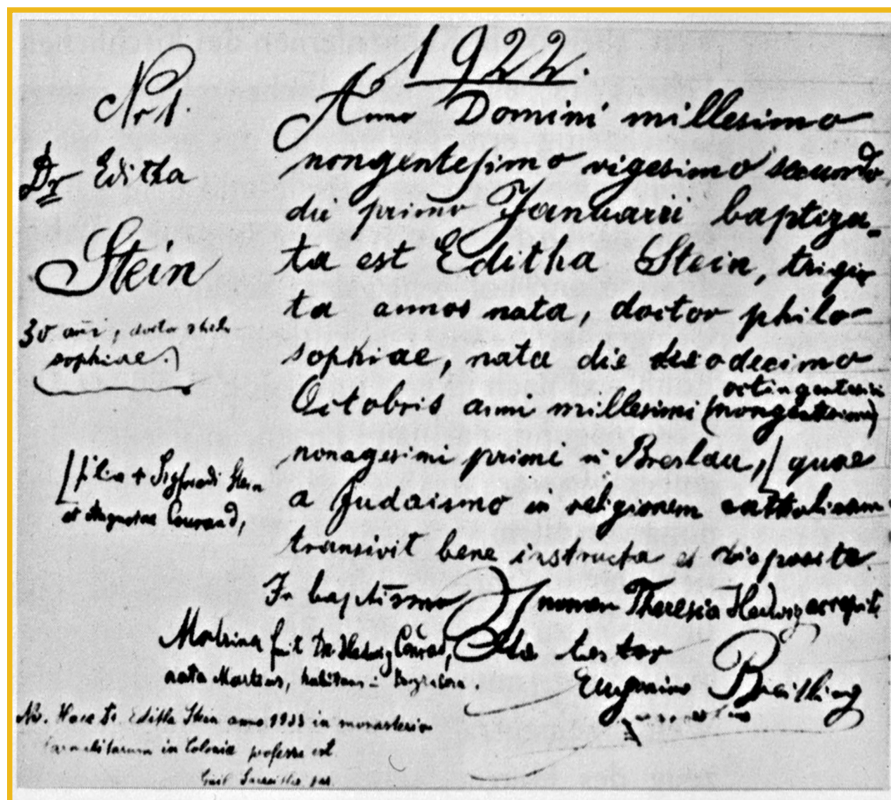 1922.
Nr 1.
Dr Editha
Stein
30 ann, doctor philo
sophiae
filia + Sigfriedi Stein
et Augustae Courand,
Anno Domini millesimo
nongentesimo vigesimo secundo
die primo Januarii baptiza-
ta est Editha Stein, trigin
ta annos nata, doctor philo
sophiae, nata die duodecimo
octingentesimi
Octobris anni millesimi (nongentesimi)
nonagesimi primi in Breslau, quae
a Judaismo in religionem catholicam
transivit bene instructa et disposita
In baptismo nomen Theresia Hedwig accepit
Matrina fuit Dr Hedwig Conrad,
nata Martius, habitans in Bergzabern.
Ita testor
Eugenius Breitling
Nb. Haec Dr. Editha Stein anno 1933 in monasterio
Carmelitarum in Colonia professa est.